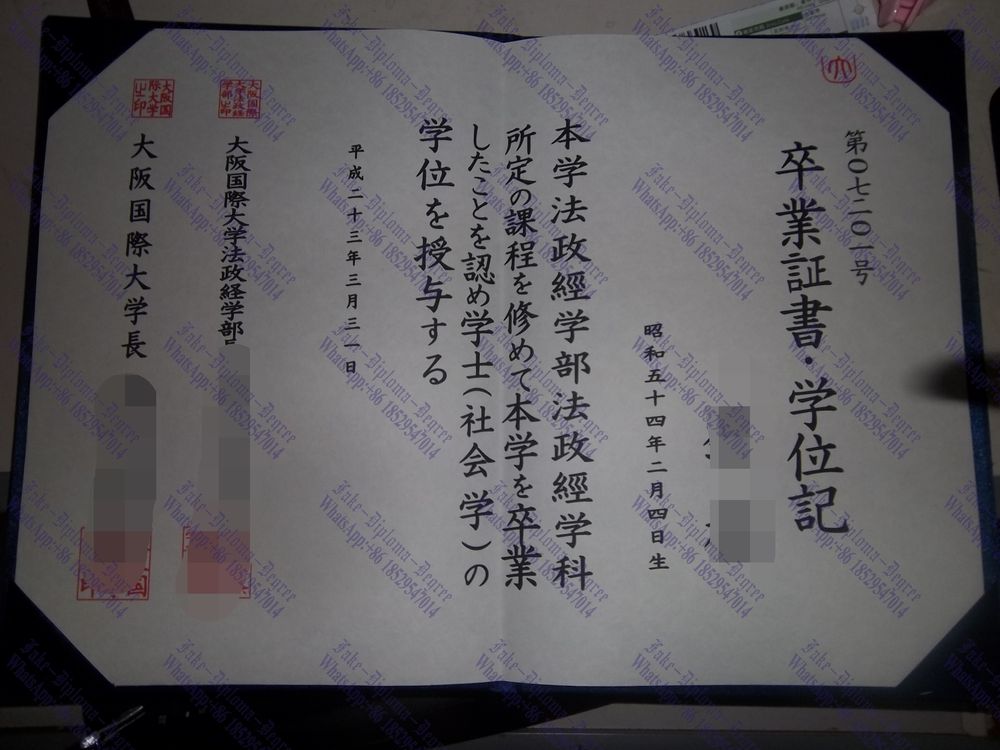 第〇七二〇一号
卒業証書・学位記
昭和五十四年二月四日生
本学法政經学部法政經学科
所定の課程を修めて本学を卒業
したことを認め学士(社会学)の
学位を授与する
平成二十三年三月三一日
大阪国際大学法政経学部
大阪国際大学長
大阪国際大学法政経学部之印
大阪国際大学之印
Fake-Diploma-Degree
WhatsApp:+86 18529547014